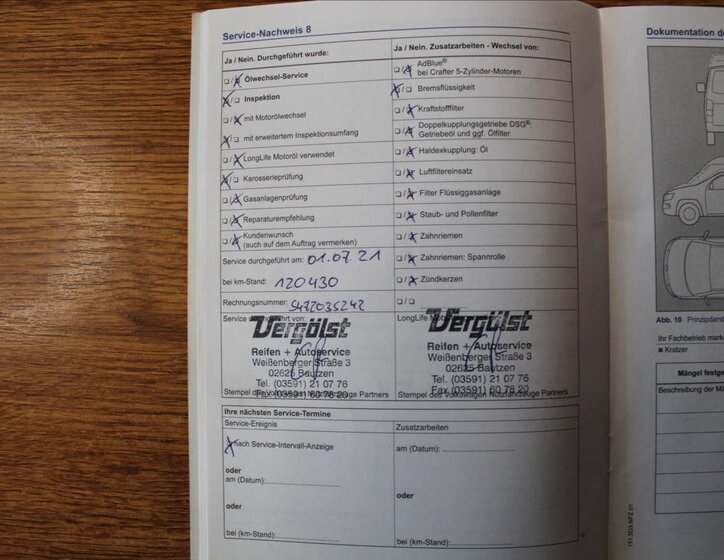 Service-Nachweis 8
Ja / Nein. Durchgeführt wurde:
☐/☒ Ölwechsel-Service
☒/☐ Inspektion
☐/☒ mit Motorölwechsel
☒/☐ mit erweitertem Inspektionsumfang
☐/☒ LongLife Motoröl verwendet
☒/☐ Karosserieprüfung
☐/☒ Gasanlagenprüfung
☐/☒ Reparaturempfehlung
☐/☒ Kundenwunsch
(auch auf dem Auftrag vermerken)
Service durchgeführt am: 01.07.21
bei km-Stand: 120430
Rechnungsnummer: 5472035242
Service durchgeführt von:
Vergölst
Reifen + Autoservice
Weißenberger Straße 3
02625 Bautzen
Tel. (03591) 21 07 76
Fax (03591) 60 78 20
Stempel des Volkswagen Nutzfahrzeuge Partners
Ja / Nein. Zusatzarbeiten - Wechsel von:
☐/☒ AdBlue®
bei Crafter 5-Zylinder-Motoren
☒/☐ Bremsflüssigkeit
☐/☒ Kraftstofffilter
☐/☒ Doppelkupplungsgetriebe DSG®:
Getriebeöl und ggf. Ölfilter
☐/☒ Haldexkupplung: Öl
☐/☒ Luftfiltereinsatz
☐/☒ Filter Flüssiggasanlage
☐/☒ Staub- und Pollenfilter
☐/☒ Zahnriemen
☐/☒ Zahnriemen: Spannrolle
☐/☒ Zündkerzen
☐/☐
LongLife
Vergölst
Reifen + Autoservice
Weißenberger Straße 3
02625 Bautzen
Tel. (03591) 21 07 76
Fax (03591) 60 78 20
Stempel des Volkswagen Nutzfahrzeuge Partners
Ihre nächsten Service-Termine
Service-Ereignis
☒ nach Service-Intervall-Anzeige
oder
am (Datum):
oder
bei (km-Stand):
Zusatzarbeiten
am (Datum):
oder
bei (km-Stand):
Dokumentation de
Abb. 10 Prinzipdarst
Ihr Fachbetrieb mark
x Kratzer
Mängel festge
Beschreibung der Mä
151.5D3.NFZ.01